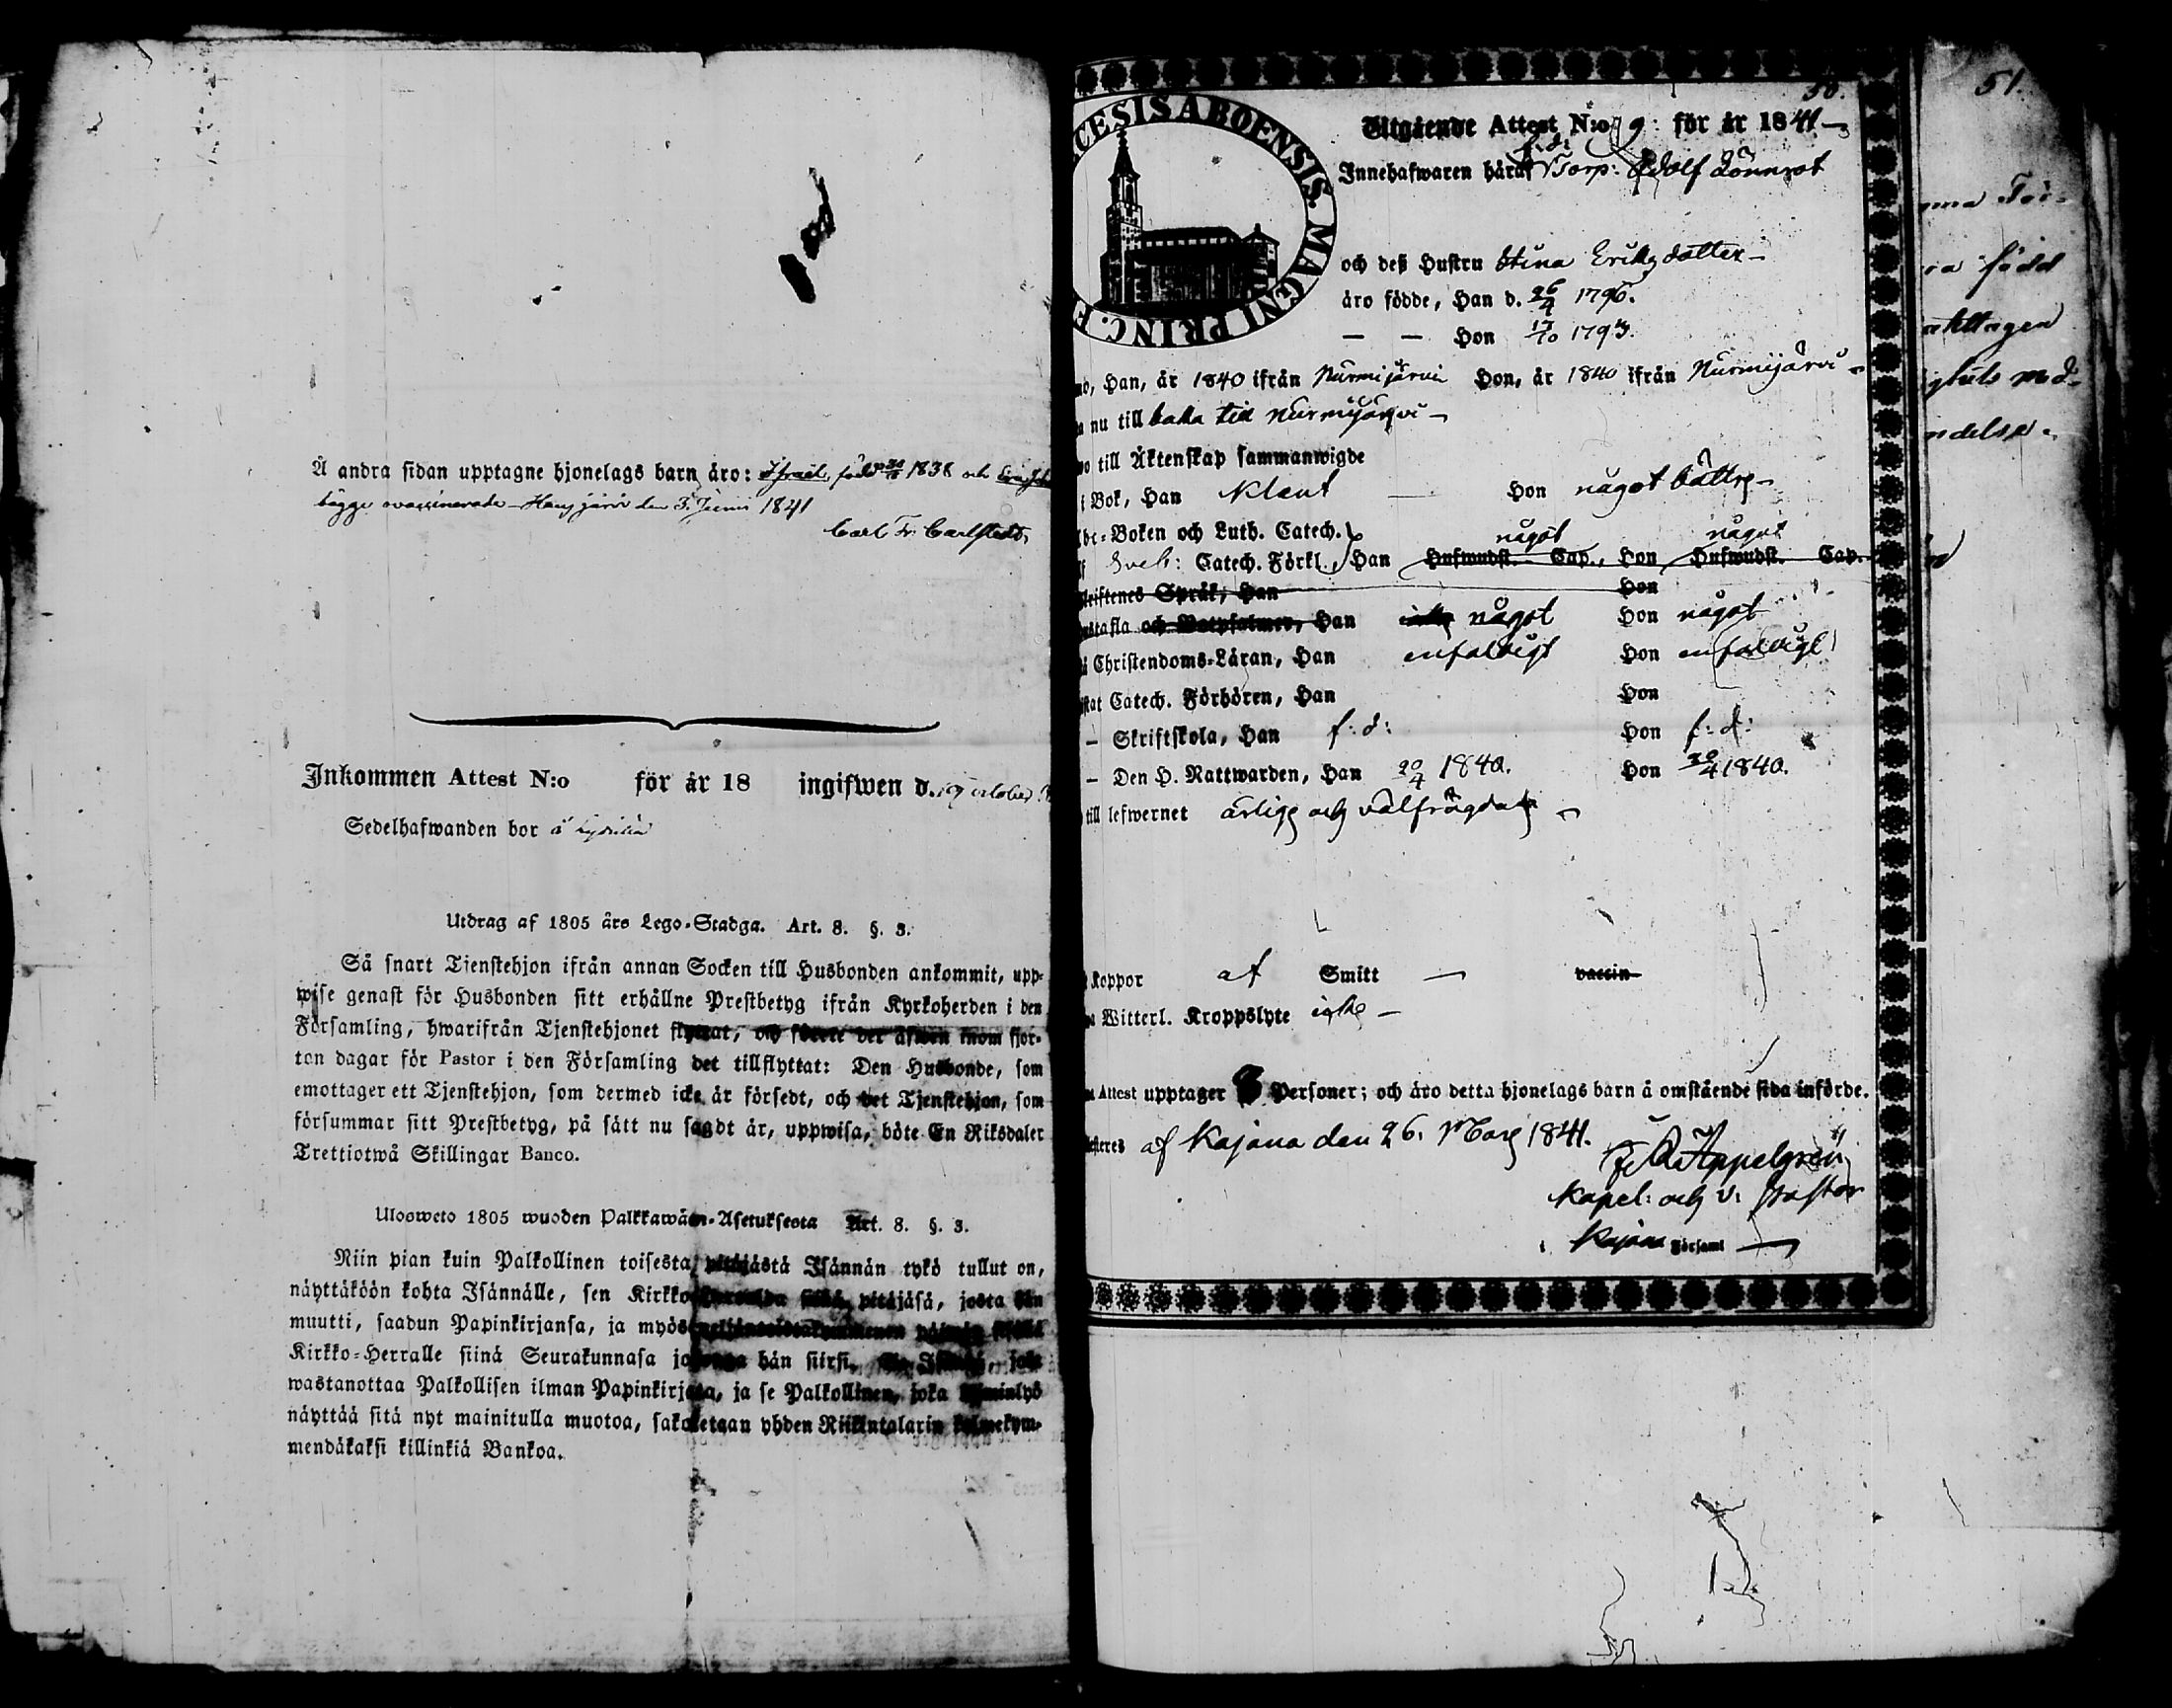 Å andra sidan upptagne hjonelags barn äro: Israel, född 1838 och
bägge ovaccinerade - Hausjärvi den 5. Junii 1841
Carl Fr. Carlstedt.
Inkommen Attest N:o för år 18 ingifwen d. 19 October
Sedelhafwanden bor å
Utdrag af 1805 års Lego-Stadga. Art. 8. §. 3.
Så snart Tjenstehjon ifrån annan Socken till Husbonden ankommit, upp-
wise genast för Husbonden sitt erhållne Prestbetyg ifrån Kyrkoherden i den
Församling, hwarifrån Tjenstehjonet flyttat, och förete det äfwen inom fjor-
ton dagar för Pastor i den Församling det tillflyttat: Den Husbonde, som
emottager ett Tjenstehjon, som dermed icke är försedt, och det Tjenstehjon, som
försummar sitt Prestbetyg, på sätt nu sagdt är, uppwisa, böte En Riksdaler
Trettiotwå Skillingar Banco.
Ulosweto 1805 wuoden Palkkawäen-Asetuksesta Art. 8. §. 3.
Niin pian kuin Palkollinen toisesta pitäjästä Isännän tykö tullut on,
näyttäköön kohta Isännälle, sen Kirkko pitäjäsä, josta hän
muutti, saadun Papinkirjansa, ja myös
Kirkko-Herralle siinä Seurakunnasa johonga hän siirsi. Se Isäntä, joka
wastanottaa Palkollisen ilman Papinkirjata, ja se Palkollinen, joka laiminlyö
näyttää sitä nyt mainitulla muotoa, sakotetaan yhden Riikintalarin kolmekym-
mendäkaksi killinkiä Bankoa.
50.
CESIS ABOENSIS. MAGNI PRINC. F
Utgående Attest N:o 9: för år 1841
f. d.
Innehafwaren häraf Torp: Adolf Lönnrot
och deß Hustru Stina Eriksdotter
äro födde, Han d. 26/4 1796.
— — Hon 17/10 1793.
Han, år 1840 ifrån Nurmijärvi Hon, år 1840 ifrån Nurmijärvi
nu till baka till Nurmijärvi
till Äktenskap sammanwigde
i Bok, Han klent — Hon något bättre
Boken och Luth. Catech.
något något
Sveb: Catech. Förkl., Han Hufwudst. Cap., Hon Hufwudst. Cap.
Skriftenes Språk, Han Hon
Hustafla och Botpsalmer, Han något Hon något
Christendoms-Läran, Han enfaldigt Hon enfaldigt
Catech. Förhören, Han Hon
— Skriftskola, Han f. d: Hon f. d:
— Den H. Nattwarden, Han 20/4 1840. Hon 20/4 1840.
till lefwernet ärlige och välfrägdade
Koppor af Smitt — vaccin
Witterl. Kroppslyte icke —
Attest upptager Personer; och äro detta hjonelags barn å omstående sida införde.
af Kajana den 26. Mars 1841.
Appelgren
Kapel: och v. Pastor
i Kajana Församl
51.
född